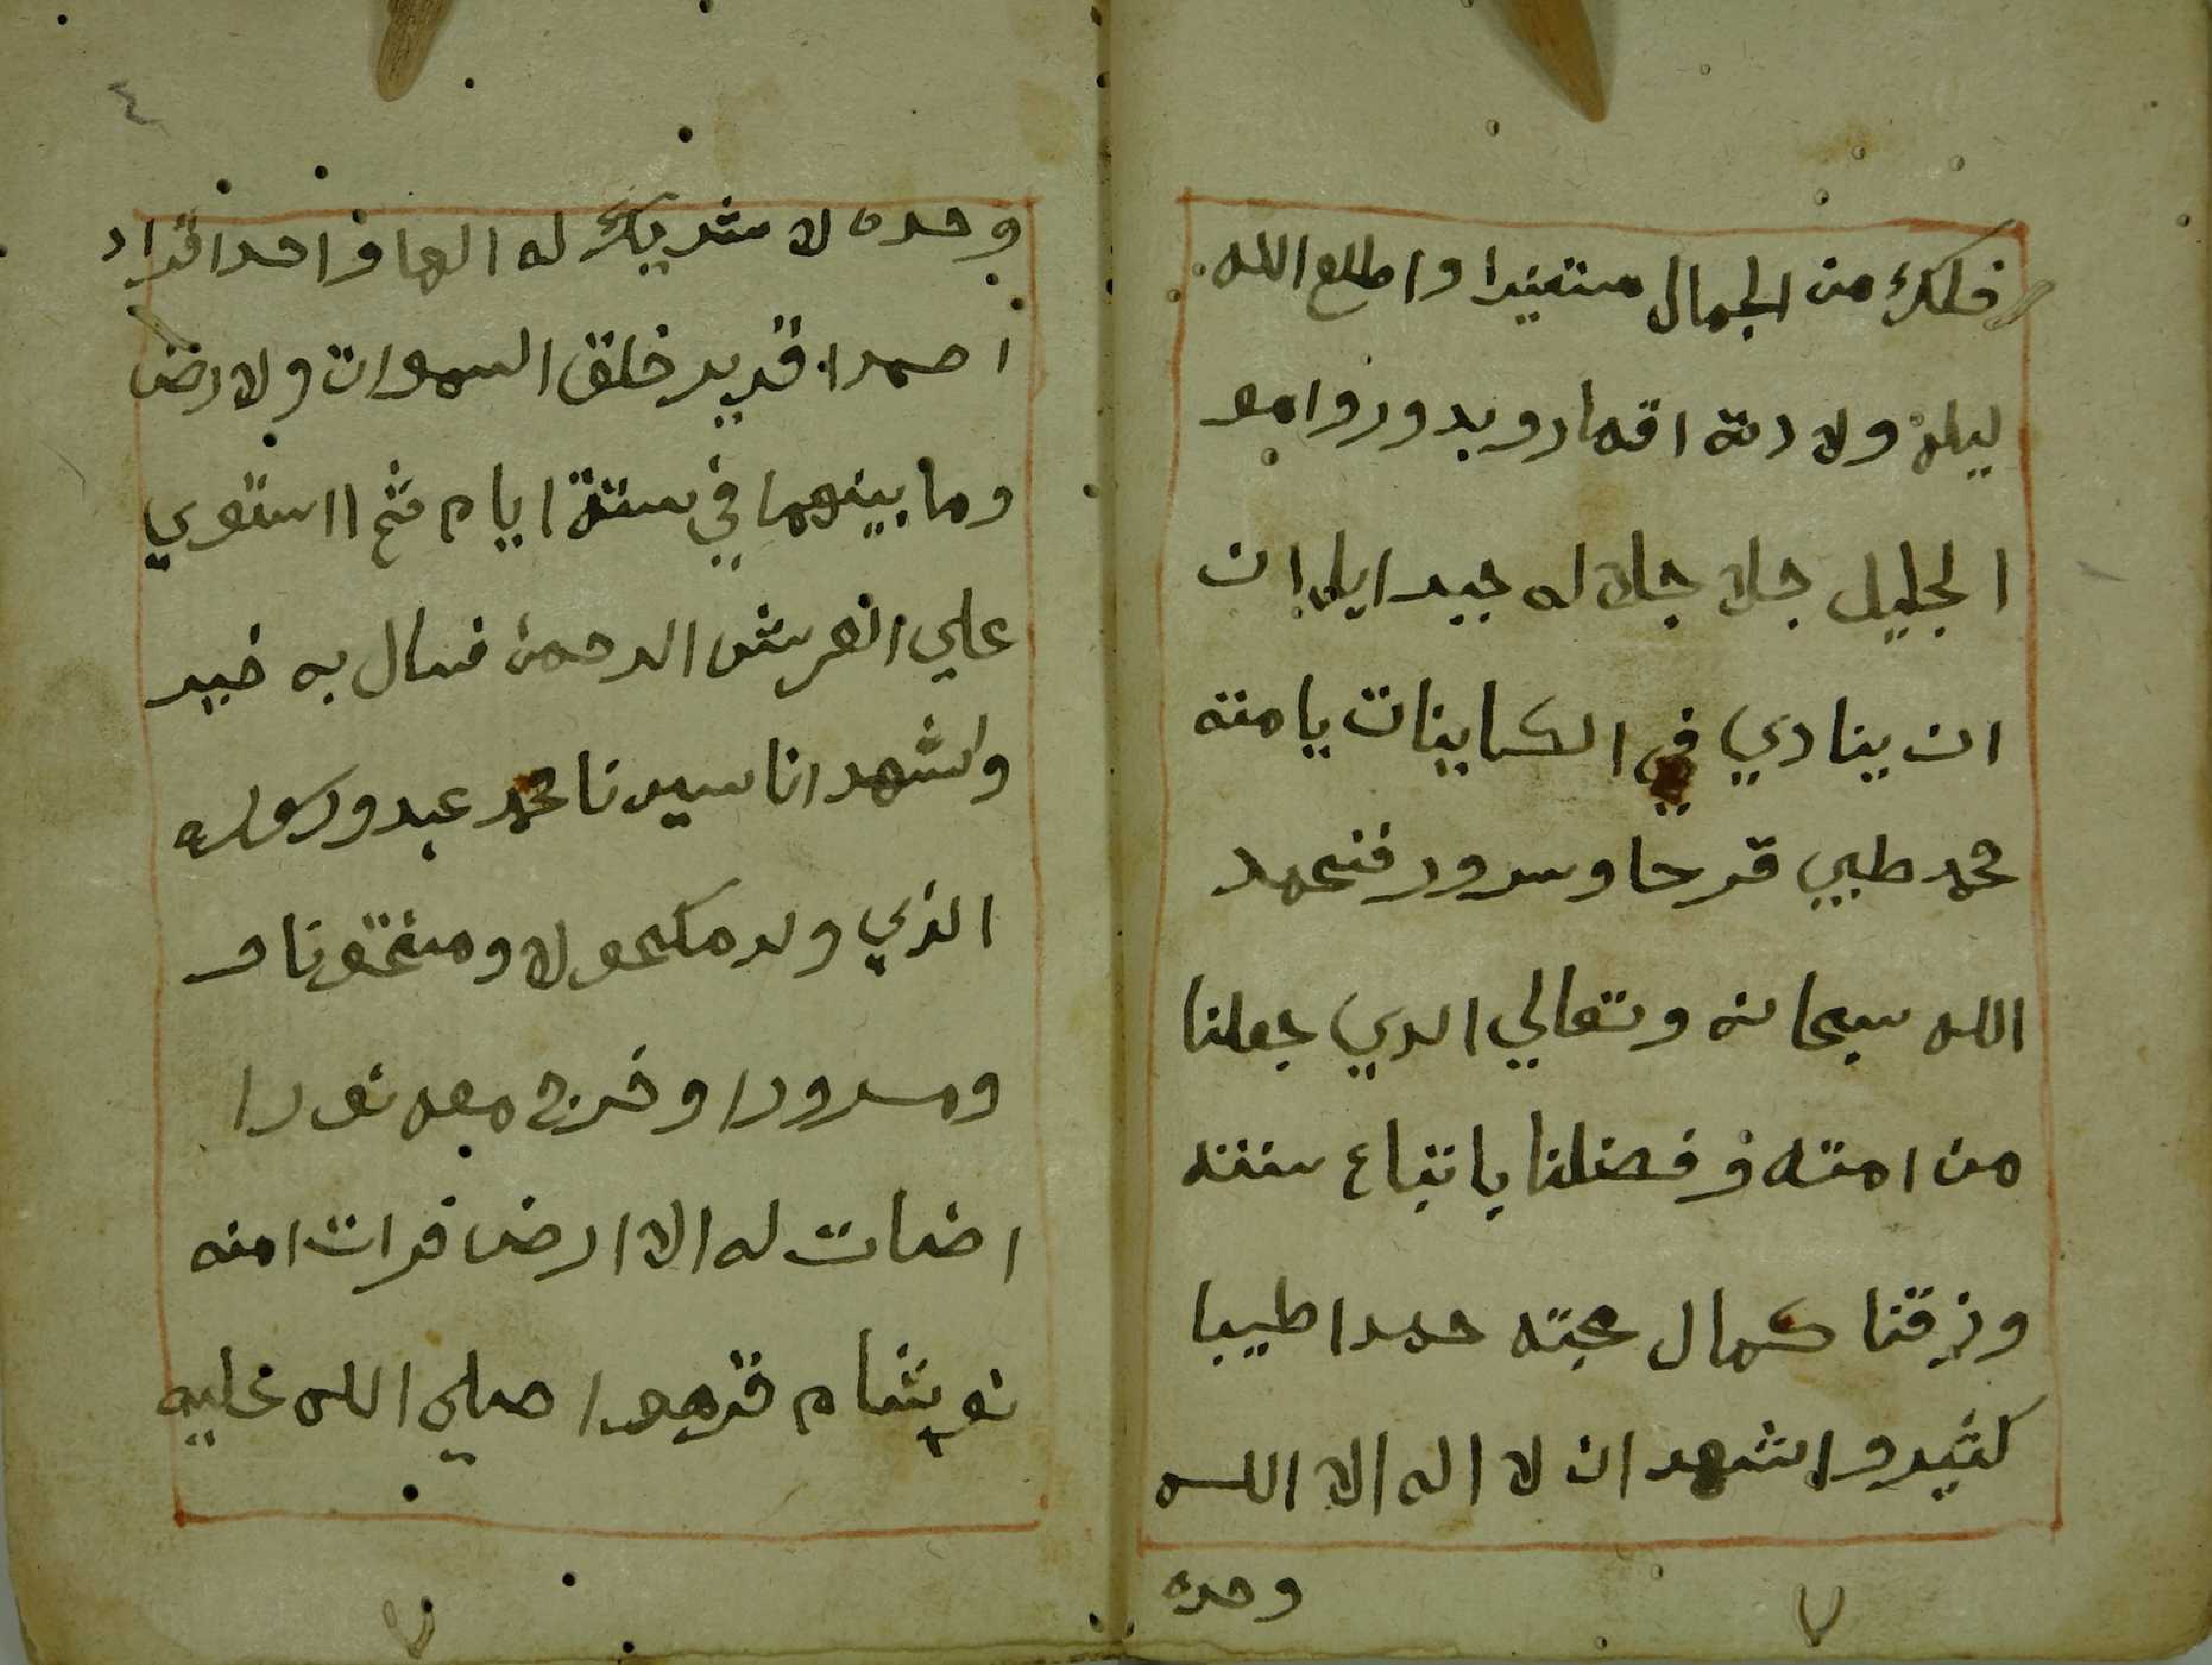 فلك من الجمال مستنيرا واطلع الله
ليلة ولادته اقمار وبدور وامر
الجليل جلا جلاله جبرايل ان
ان ينادي في الكاينات يا منه
محمد طيبي فرحا وسرور فنحمد
الله سبحانه وتعالي الدي جعلنا
من امته وفضلنا باتباع سنته
ورزقنا كمال محبته حمدا طيبا
كثير واشهد ان لا اله الا الله
وحده
٤
وحده لا شريك له الها واحدا فراد
ا صمدا قدير خلق السموات ولارض
وما بينهما في ستة ايام ثم ااستوي
علي العرش الرحمن فسال به خبير
واشهد انا سيدنا محمد عبد ورسوله
الذي ولد مكحولا ومختونا و
ومسرورا وخرج معه نورا
اضات له الا ارض فرات امنه
صلي الله عليه